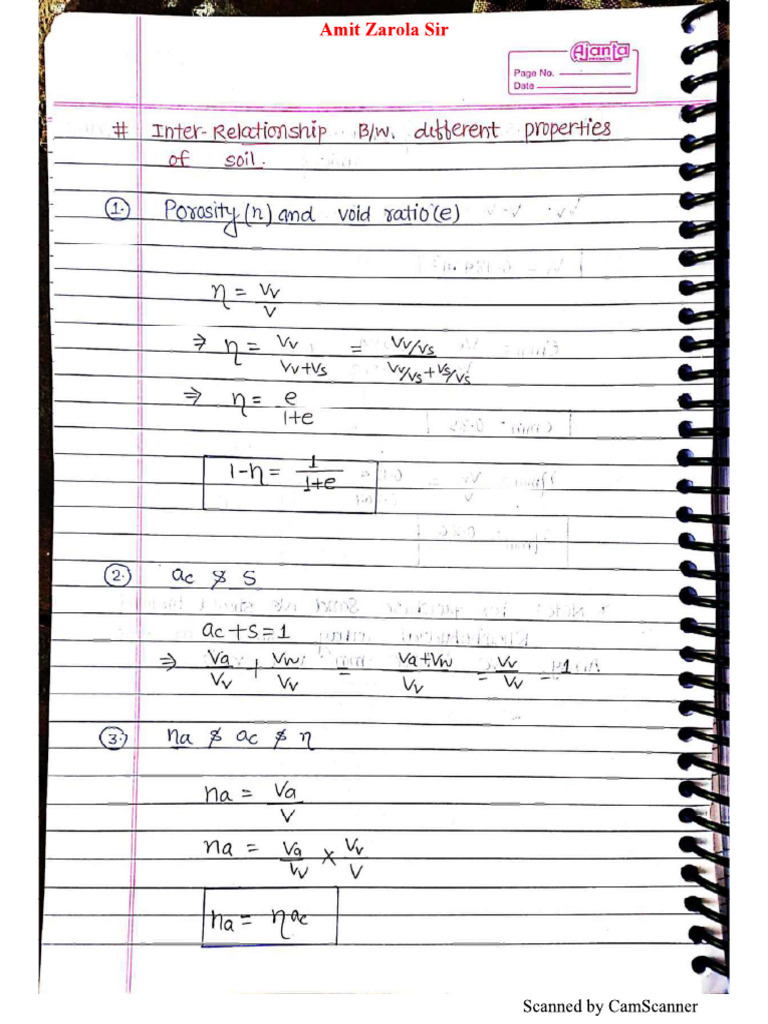 Amit Zarola Sir
Ajanta
Page No.
Date
# Inter-Relationship B/w. different properties
of soil.
1. Porosity (n) and void ratio (e)
η = Vv/V
⇒ η = Vv/(Vv+Vs) = (Vv/Vs)/(Vv/Vs + Vs/Vs)
⇒ η = e/(1+e)
1-η = 1/(1+e)
2. ac & S
ac + S = 1
⇒ Va/Vv + Vw/Vv = (Va+Vw)/Vv = Vv/Vv = 1
3. na & ac & η
na = Va/V
na = Va/Vv × Vv/V
na = η ac
Scanned by CamScanner